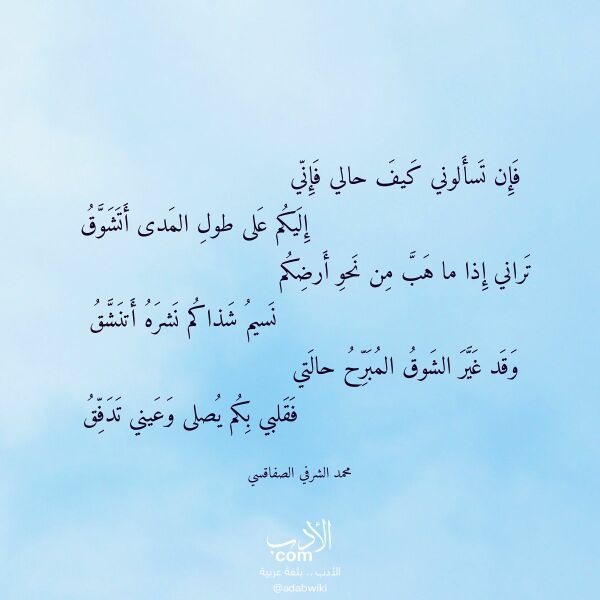 فَإِن تَسأَلوني كَيفَ حالي فَإِنّي
إِلَيكُم عَلى طولِ المَدى أَتَشَوَّقُ
تَراني إِذا ما هَبَّ مِن نَحوِ أَرضِكُم
نَسيمُ شَذاكُم نَشرَهُ أَتنَشَّقُ
وَقَد غَيَّرَ الشَوقُ المُبَرِّحُ حالَتي
فَقَلبي بِكُم يُصلى وَعَيني تَدَفِّقُ
محمد الشرفي الصفاقسي
الأدب
com
الأدب .. بلغة عربية
@adabwiki